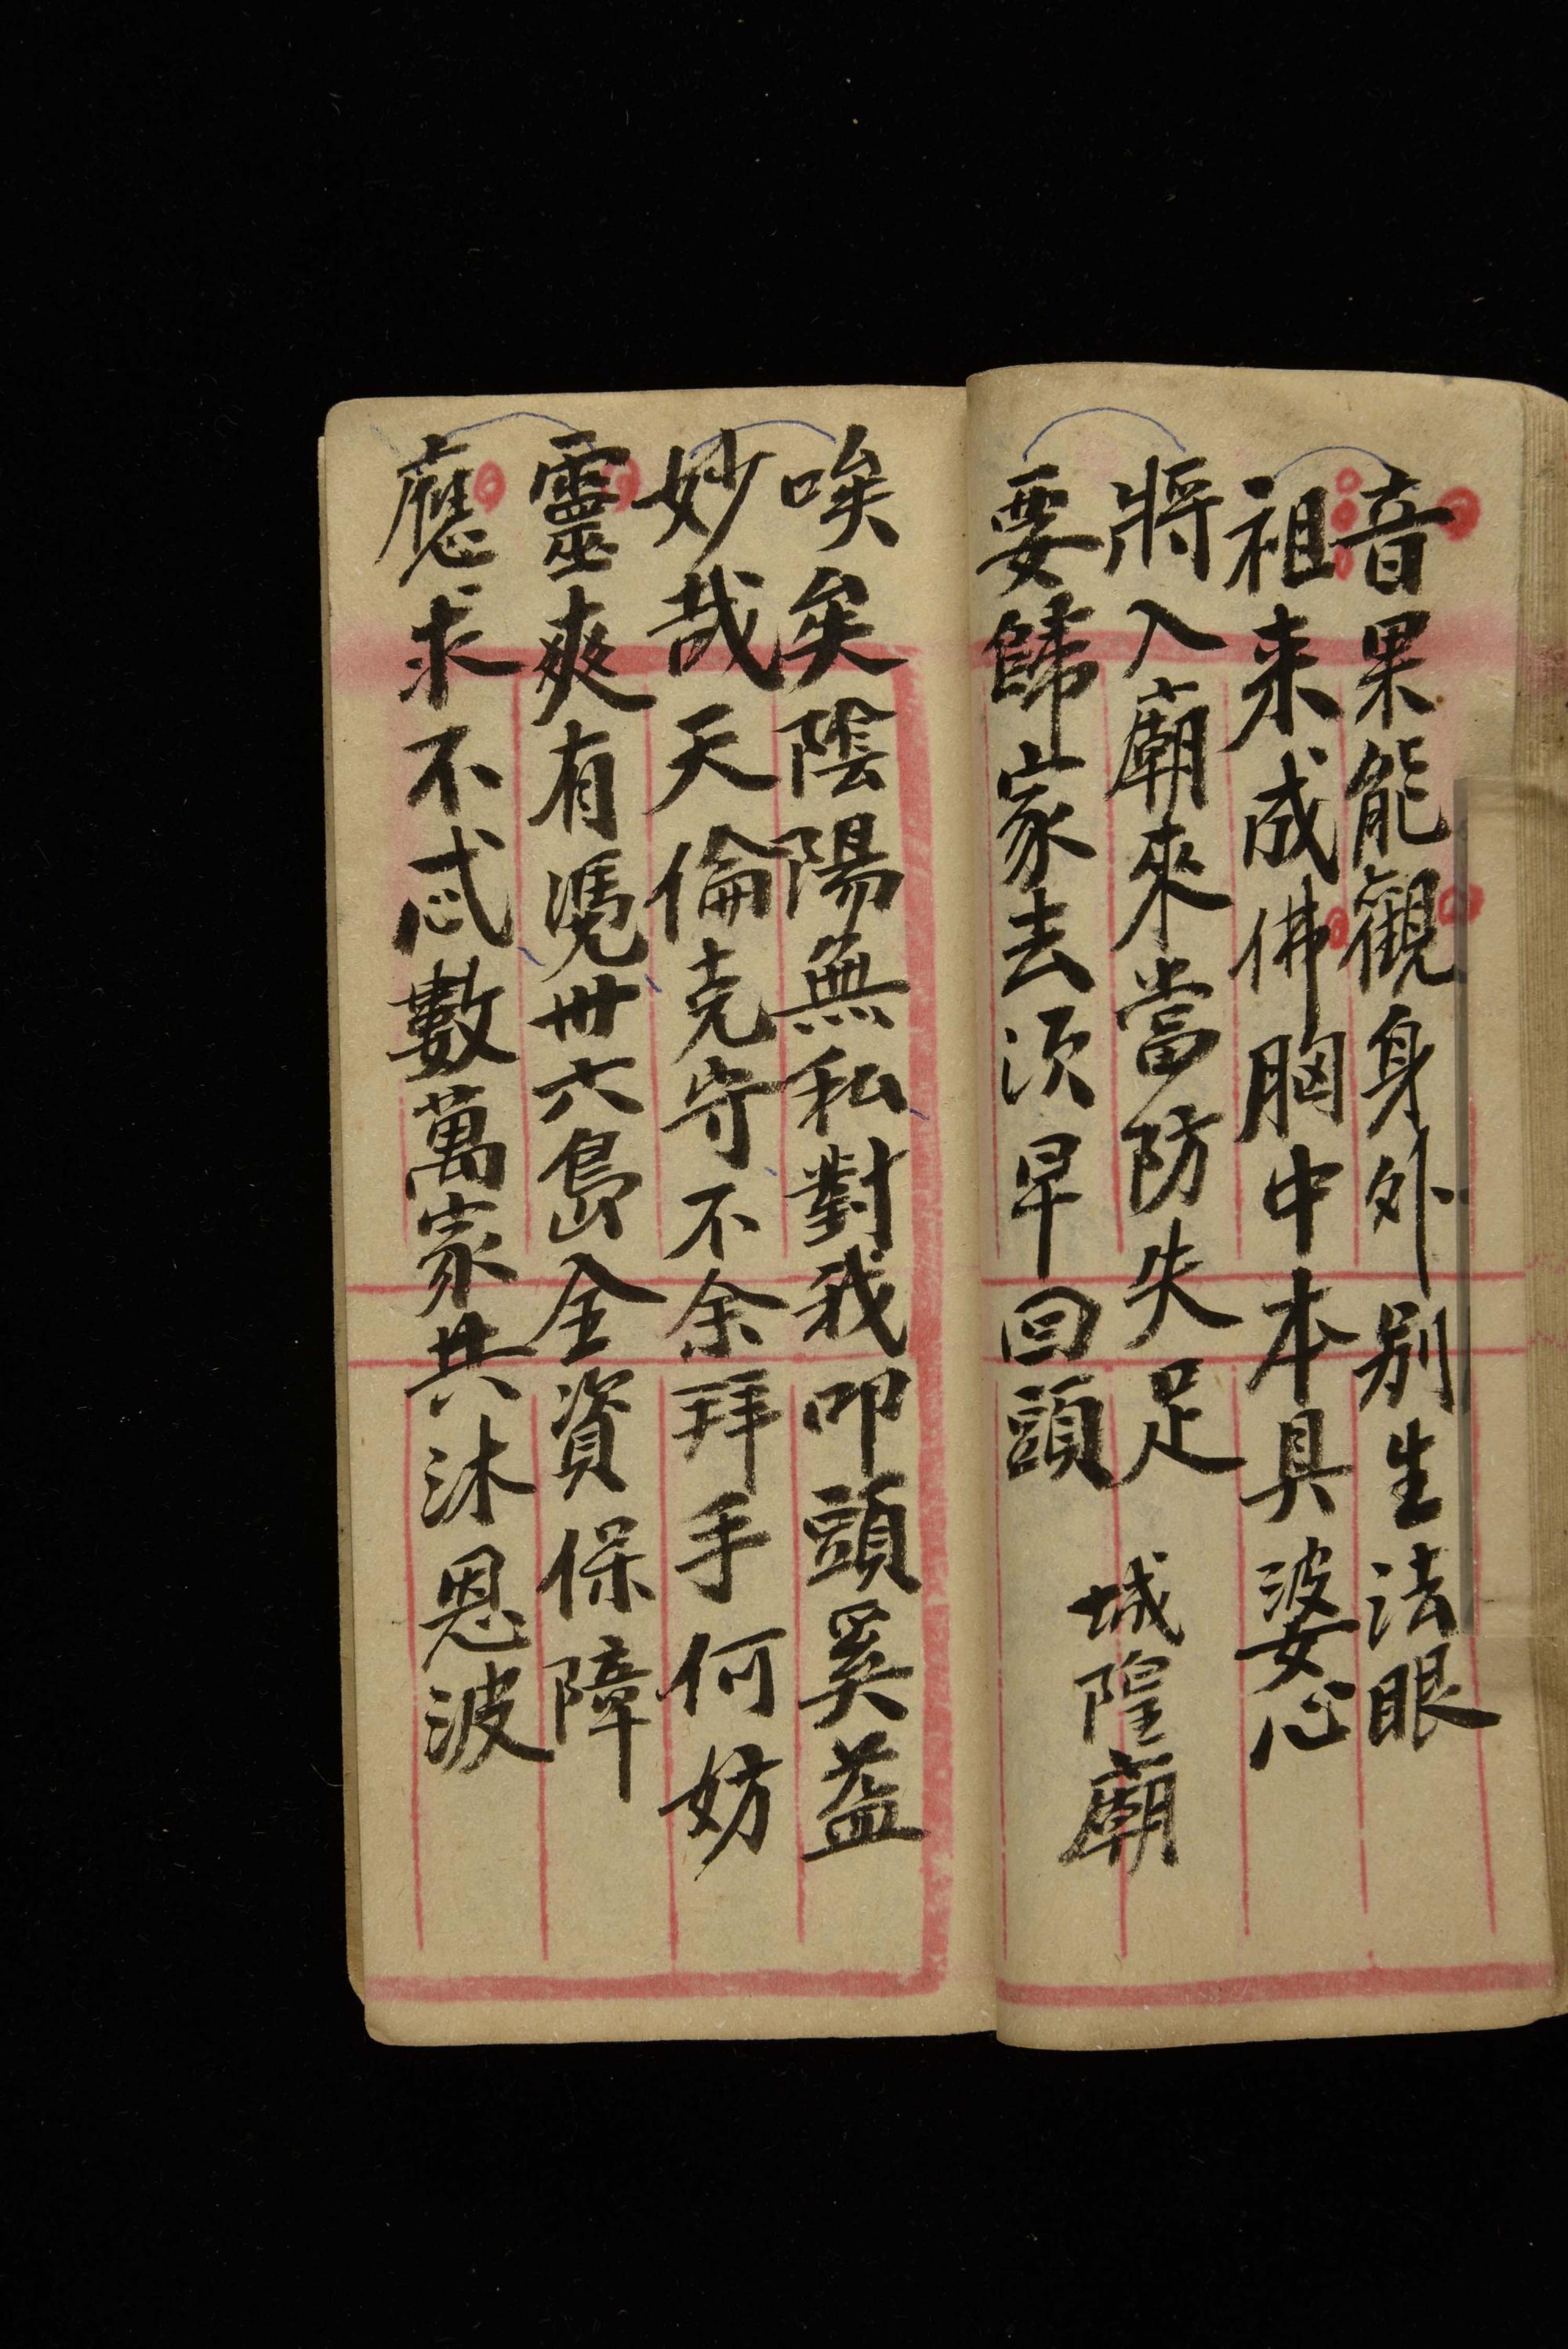 音果能觀身外別生法眼
祖来成佛胸中本具婆心
將入廟來當防失足
要歸家去須早回頭
城隍廟
唉矣陰陽無私對我叩頭奚益
妙哉天倫克守不余拜手何妨
靈爽有馮卅六島全資保障
應求不忒數萬家共沐恩波